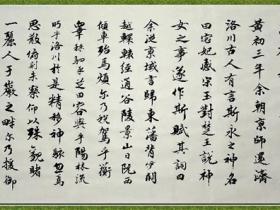 黄初三年余朝京師還濟
洛川古人有言斯水之神名
曰宓妃感宋玉對楚王說神
女之事遂作斯賦其詞曰
余從京城言歸東藩背伊闕
越轘轅經通谷陵景山日既西
傾車殆馬煩尔乃税駕乎蘅
皋秣駟乎芝田容與乎陽林流
眄乎洛川於是精移神駭忽焉
思散俯則未察仰以殊觀睹
一麗人于巖之畔尔乃援御